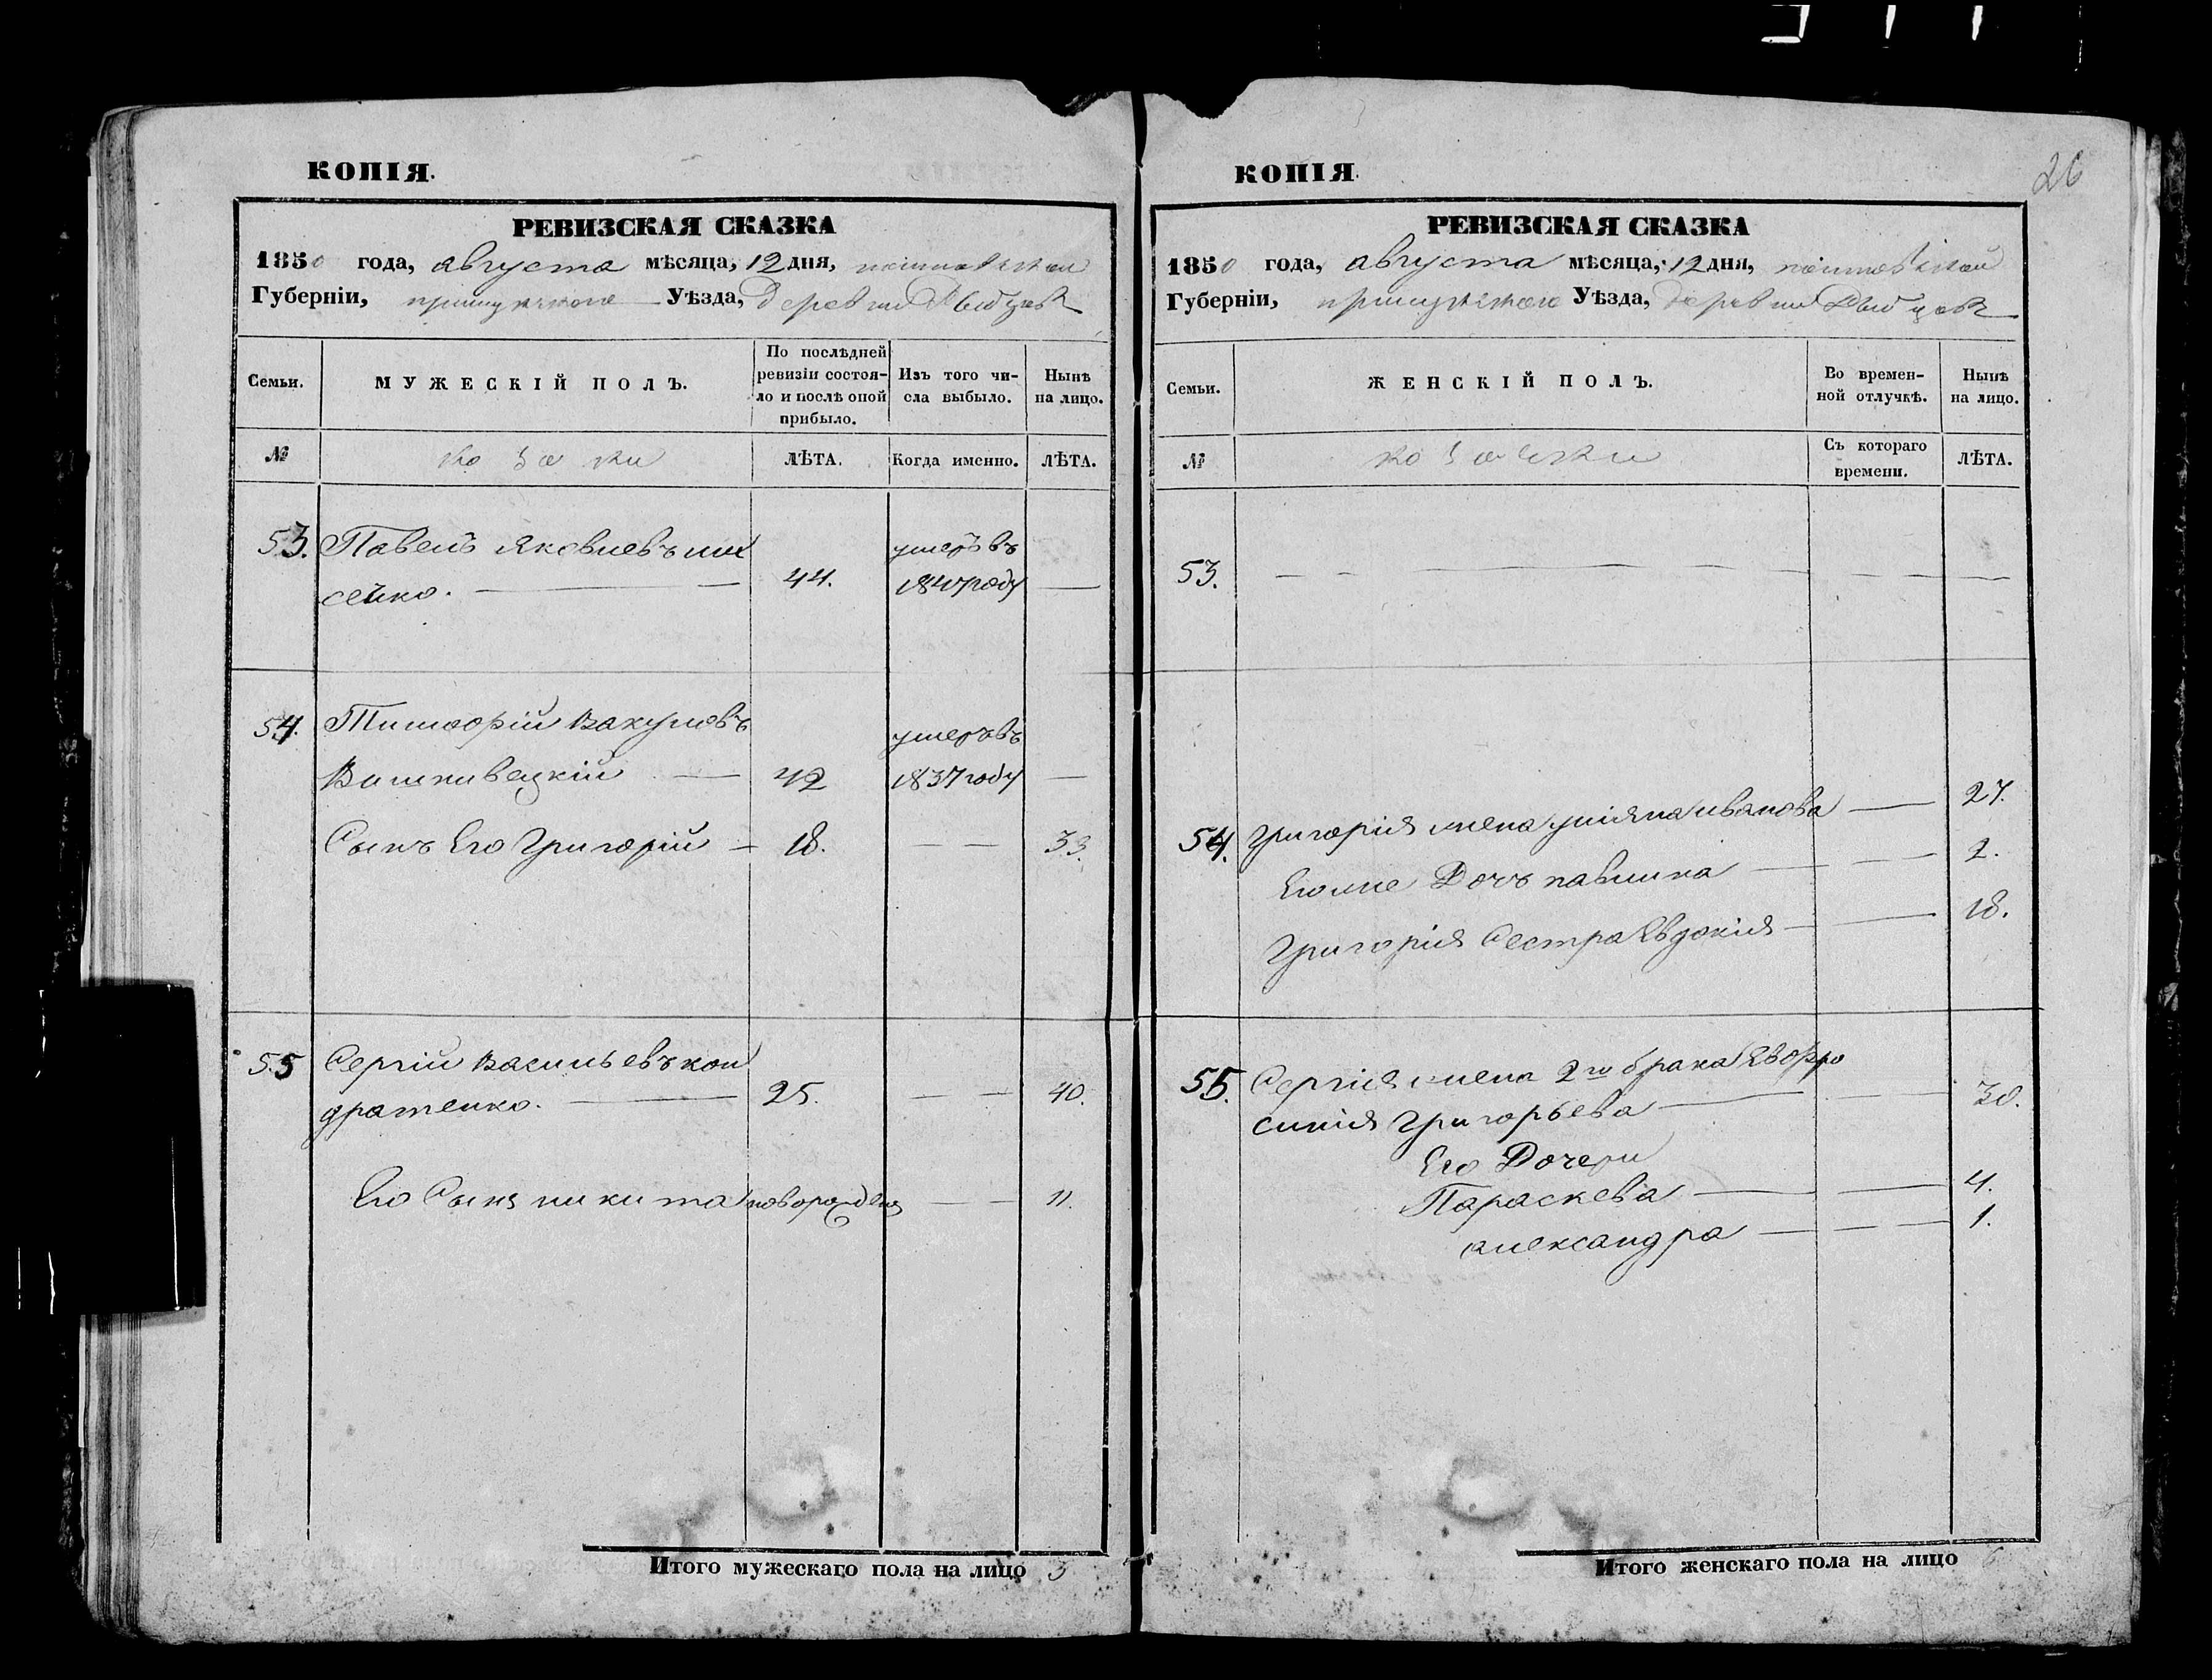 КОПІЯ.
РЕВИЗСКАЯ СКАЗКА
1850 года, августа мѣсяца, 12 дня, полтавской
Губерніи, прилукского Уѣзда, деревни
Семьи.
МУЖЕСКІЙ ПОЛЪ.
По послѣдней ревизіи состоя-
ло и послѣ оной прибыло.
Изъ того чи-
сла выбыло.
Нынѣ
на лицо.
№
козаки
ЛѢТА.
Когда именно.
ЛѢТА.
53. Павелъ Яковлевъ
сейко. — 44. умеръ въ 1847 году —
54. Тимофій Вакуловъ
Вишнивецкій — 42 умеръ въ 1837 году —
Сынъ Его Григорій — 18. — — 33.
55 Сергій Васильевъ кон
дратенко. — 25. — — 40.
Его Сынъ никита новорожден — — 11.
Итого мужескаго пола на лицо 3
26
КОПІЯ.
РЕВИЗСКАЯ СКАЗКА
1850 года, августа мѣсяца, 12 дня, полтавской
Губерніи, прилукского Уѣзда, деревни
Семьи.
ЖЕНСКІЙ ПОЛЪ.
Во времен-
ной отлучкѣ.
Нынѣ
на лицо.
№
козачки
Съ котораго
времени.
ЛѢТА.
53. — — — — — —
54. Григорія жена уліяна иванова — 27.
Его же Дочъ павлина — — 2.
Григорія Сестра Евдокія — — 18.
55. Сергія жена 2го брака Евфро
синія Григорьева — — — 30.
Его Дочери
Параскева — — 4.
александра — — — 1.
Итого женскаго пола на лицо 6